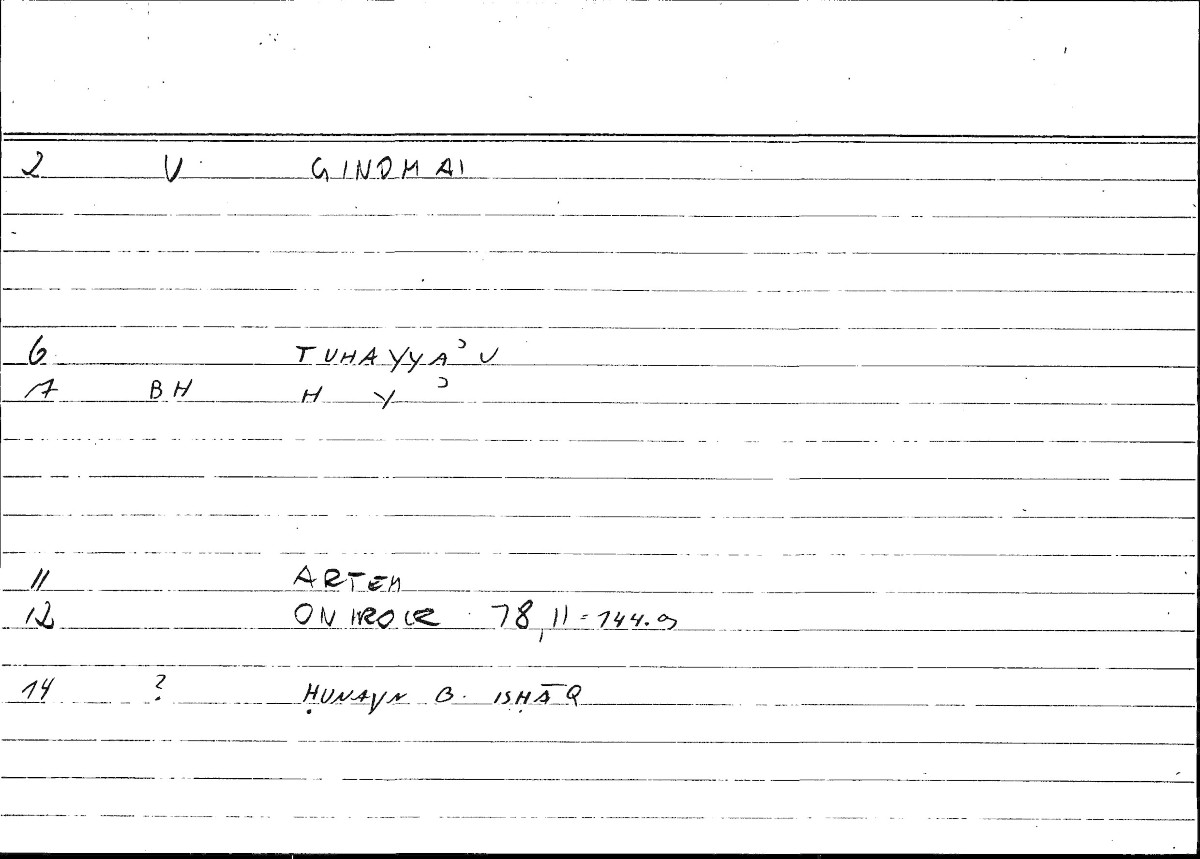 2 V GINOMAI
6 TUHAYYAʾU
7 BH H Y ʾ
11 ARTEM
12 ONIROCR 78,11 = 144.9
14 ? ḤUNAYN B. ISḤĀQ